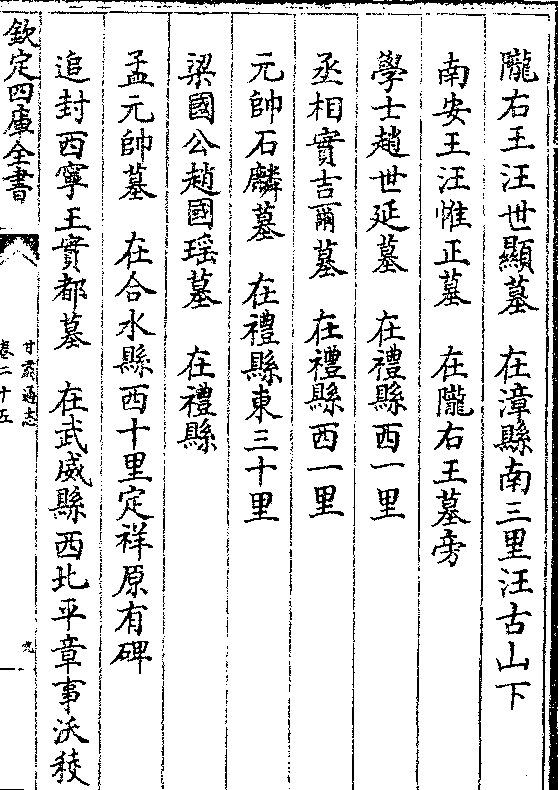 隴右王汪世顯墓　在漳縣南三里汪古山下
南安王汪惟正墓　在隴右王墓旁
學士趙世延墓　在禮縣西一里
丞相實吉爾墓　在禮縣西一里
元帥石麟墓　在禮縣東三十里
梁國公趙國瑶墓　在禮縣
孟元帥墓　在合水縣西十里定祥原有碑
追封西寧王實都墓　在武威縣西北平章事沃稜
欽定四庫全書
甘肅通志
卷二十五
九